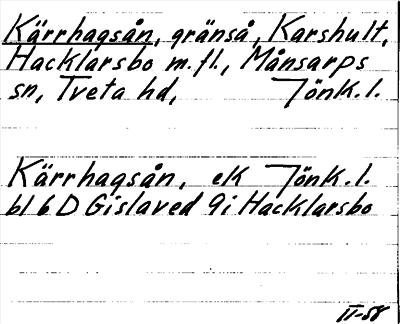 Kärrhagsån, gränså, Karshult,
Hacklarsbo m.fl., Månsarps
sn, Tveta hd, Jönk.l.
Kärrhagsån, ek Jönk.l.
bl 6 D Gislaved 9i Hacklarsbo
II-58